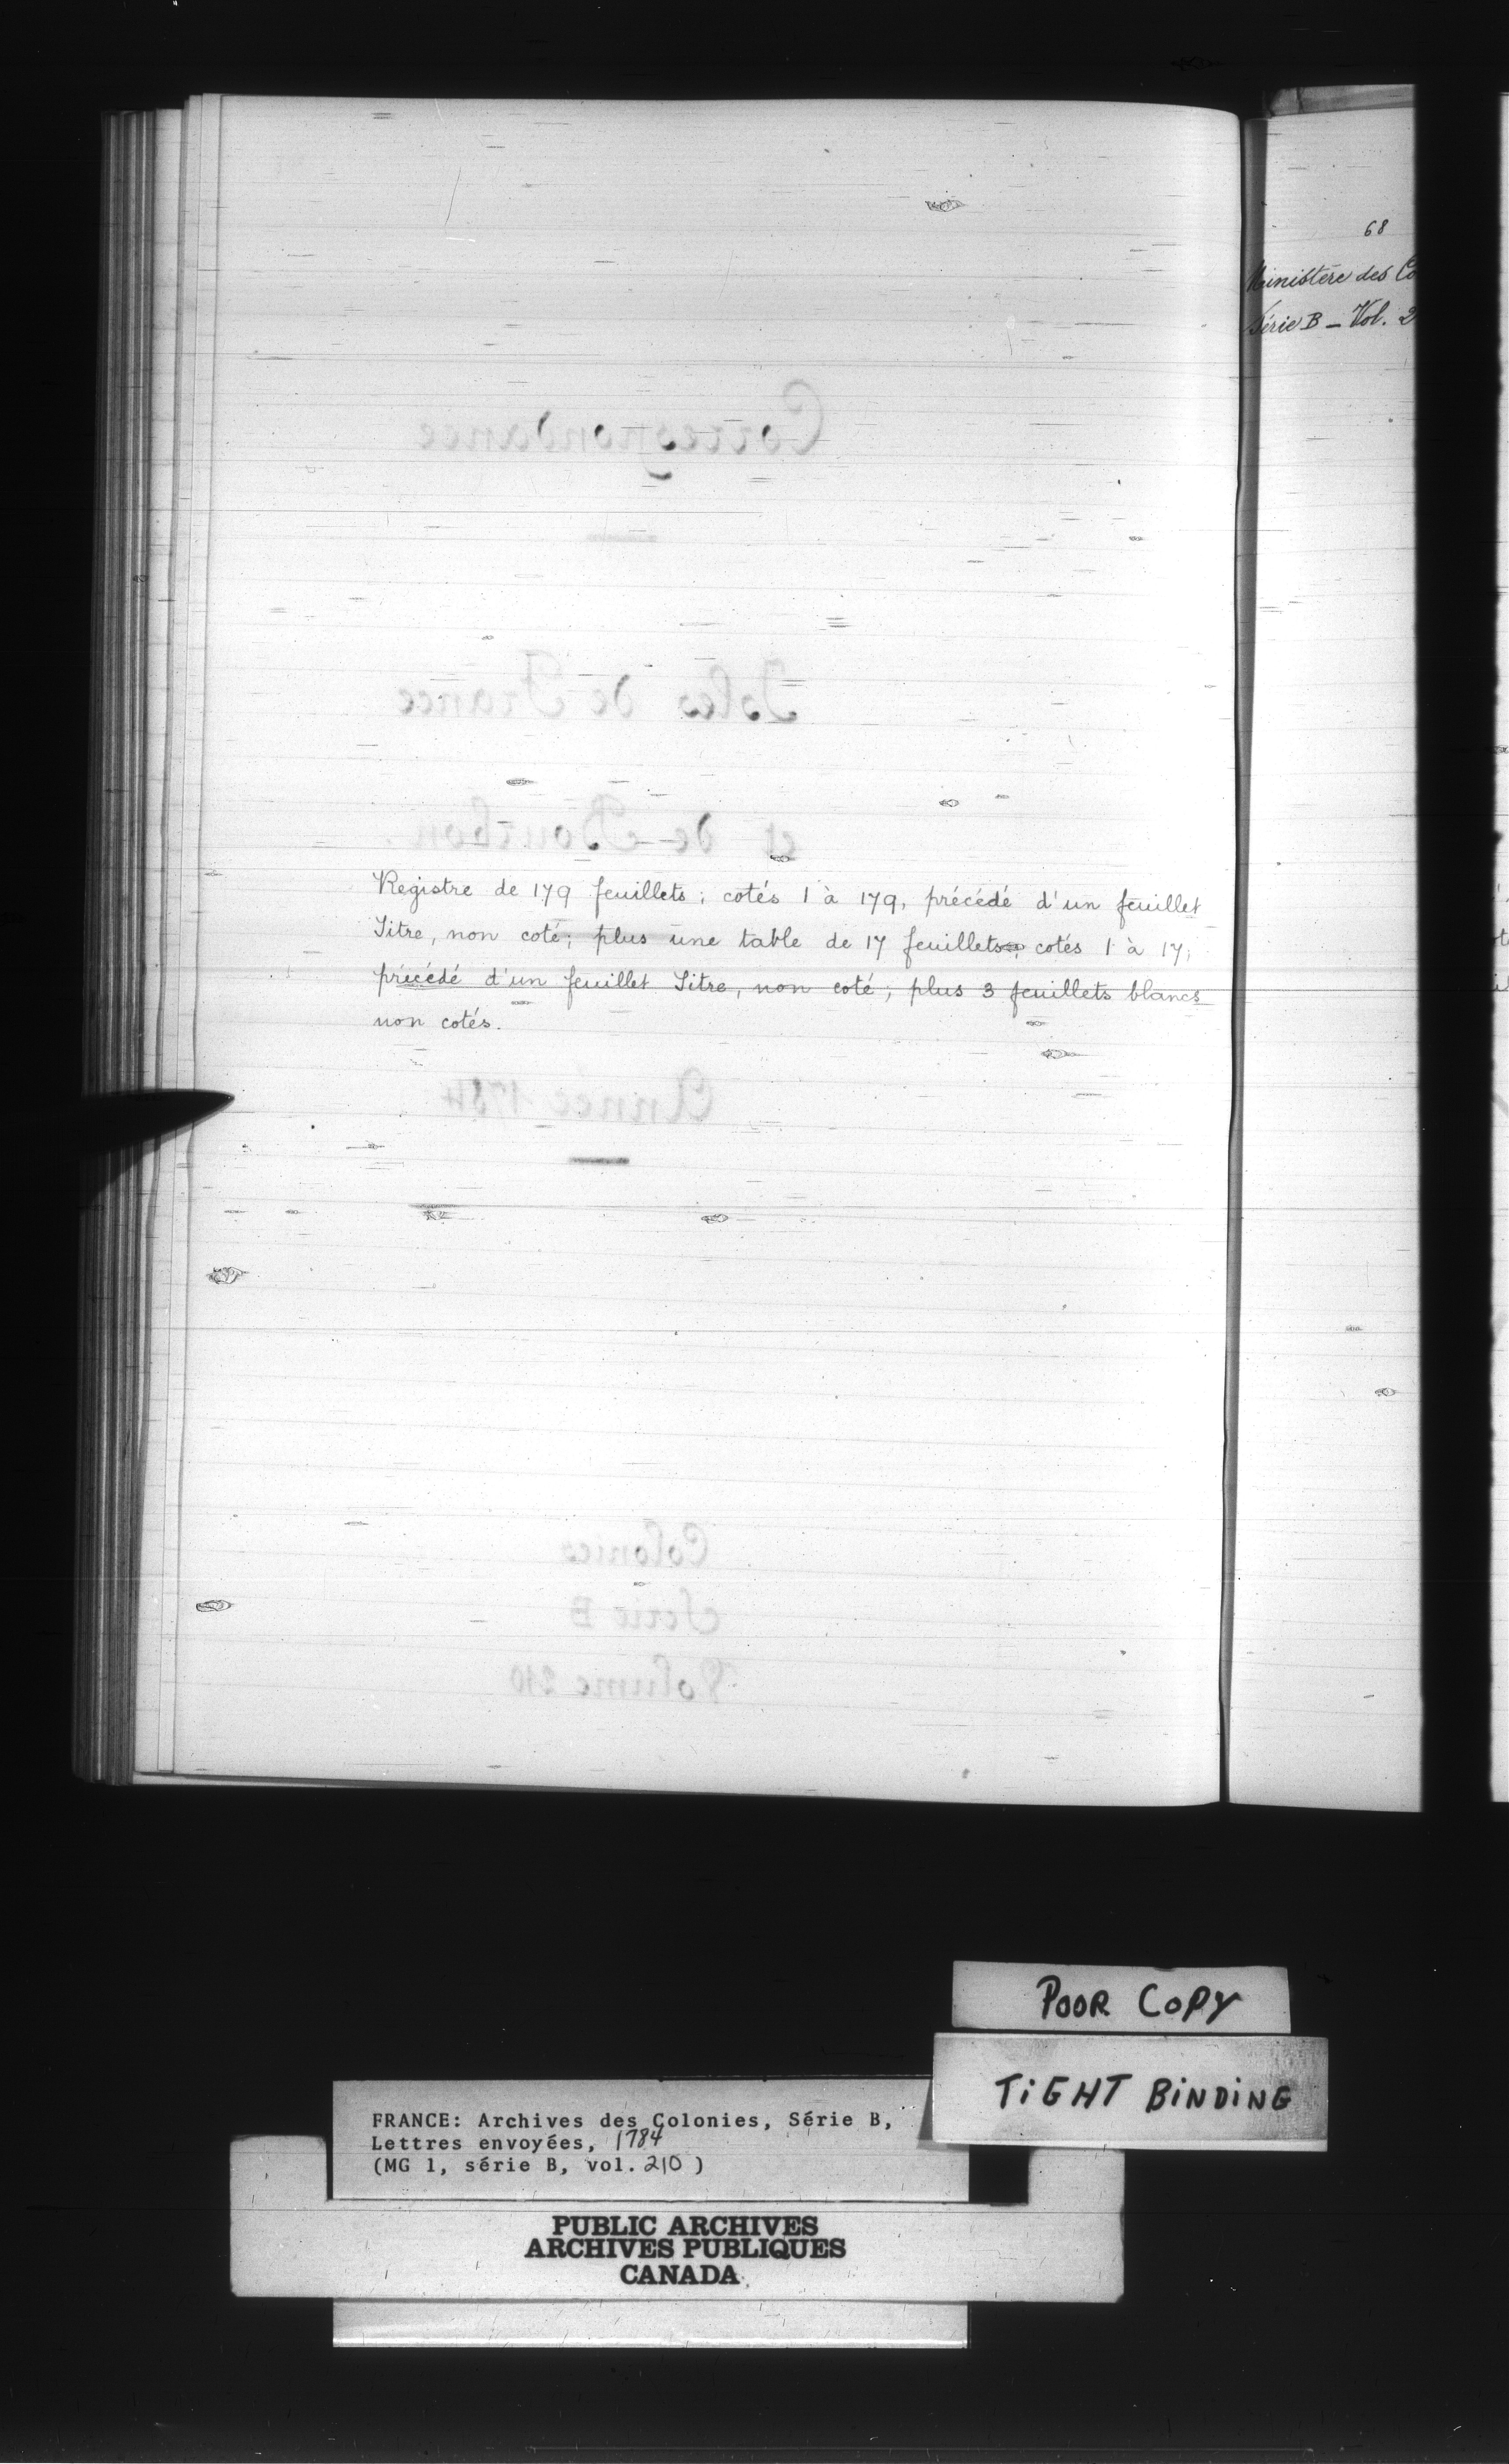 Correspondance
Isles de France
et de Bourbon.
Registre de 179 feuillets; cotés 1 à 179, précédé d'un feuillet
Titre, non coté; plus une table de 17 feuillets, cotés 1 à 17;
précédé d'un feuillet Titre, non coté; plus 3 feuillets blancs
non cotés.
Année 1784
Colonies
Série B
Volume 210
68
Ministère des Co
Série B - Vol. 2
POOR COPY
TIGHT BINDING
FRANCE: Archives des Colonies, Série B,
Lettres envoyées, 1784
(MG 1, série B, vol. 210)
PUBLIC ARCHIVES
ARCHIVES PUBLIQUES
CANADA